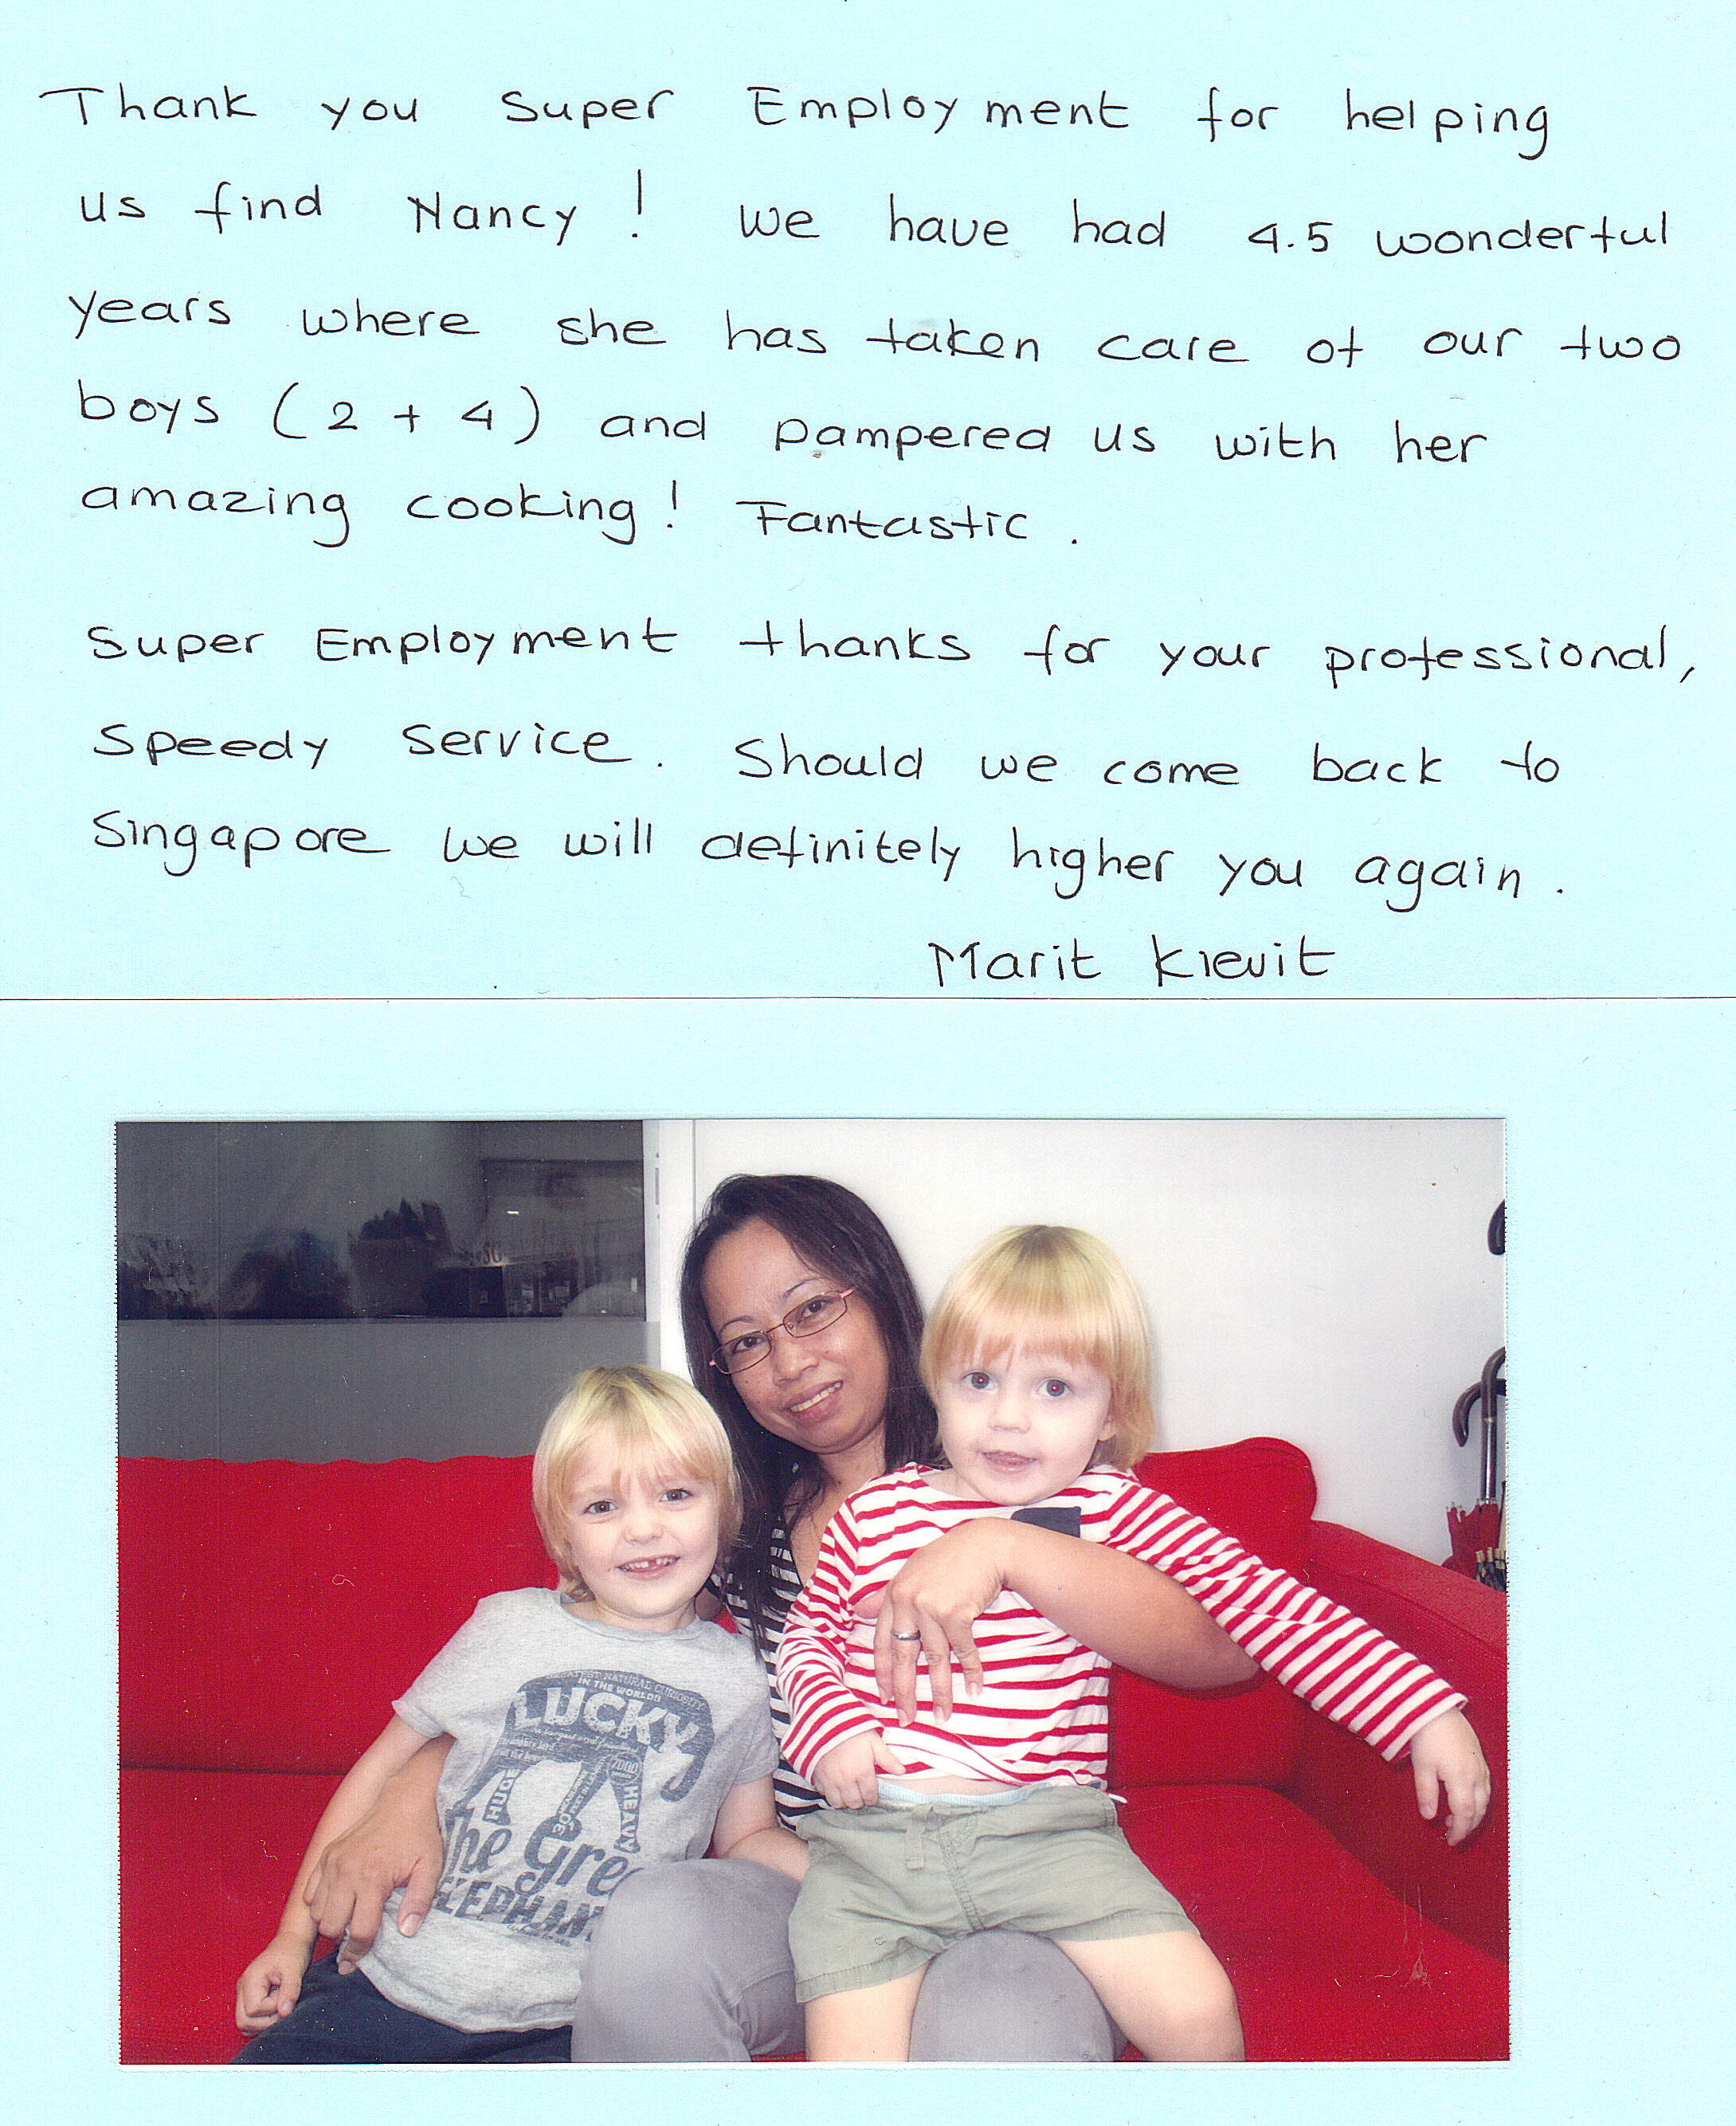 Thank you Super Employment for helping
us find Nancy! We have had 4.5 wonderful
years where she has taken care of our two
boys (2 + 4) and pampered us with her
amazing cooking! Fantastic.
Super Employment thanks for your professional,
speedy service. Should we come back to
Singapore we will definitely higher you again.
Marit Kievit
GREATEST NATURAL CURIOSITY
IN THE WORLD!!
LUCKY
HUGE
7000
HEAVY
The Gre
ELEPHAN